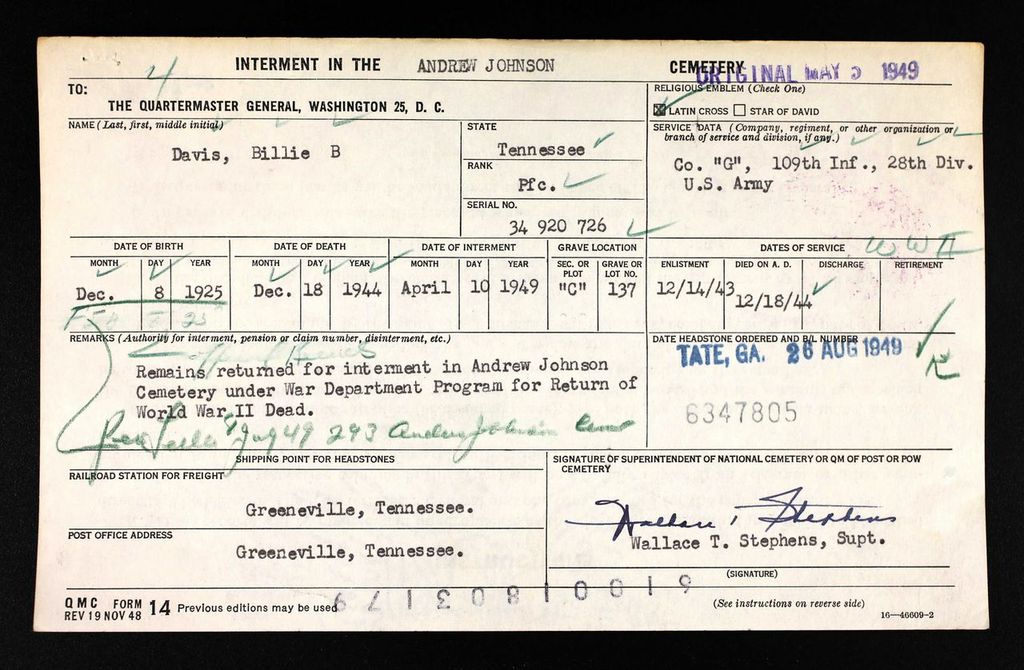 INTERMENT IN THE ANDREW JOHNSON CEMETERY
ORIGINAL MAY 5 1949
4
TO:
THE QUARTERMASTER GENERAL, WASHINGTON 25, D. C.
RELIGIOUS EMBLEM (Check One)
☒ LATIN CROSS ☐ STAR OF DAVID
NAME (Last, first, middle initial)
Davis, Billie B
STATE
Tennessee
RANK
Pfc.
SERIAL NO.
34 920 726
SERVICE DATA (Company, regiment, or other organization or
branch of service and division, if any.)
Co. "G", 109th Inf., 28th Div.
U.S. Army
DATE OF BIRTH
MONTH DAY YEAR
Dec. 8 1925
DATE OF DEATH
MONTH DAY YEAR
Dec. 18 1944
DATE OF INTERMENT
MONTH DAY YEAR
April 10 1949
GRAVE LOCATION
SEC. OR PLOT GRAVE OR LOT NO.
"C" 137
DATES OF SERVICE
WW II
ENLISTMENT DIED ON A. D. DISCHARGE RETIREMENT
12/14/43 12/18/44
REMARKS (Authority for interment, pension or claim number, disinterment, etc.)
Remains returned for interment in Andrew Johnson
Cemetery under War Department Program for Return of
World War II Dead.
49 293 Andrew Johnson
DATE HEADSTONE ORDERED AND B/L NUMBER
TATE, GA. 26 AUG 1949
6347805
SHIPPING POINT FOR HEADSTONES
RAILROAD STATION FOR FREIGHT
Greeneville, Tennessee.
POST OFFICE ADDRESS
Greeneville, Tennessee.
SIGNATURE OF SUPERINTENDENT OF NATIONAL CEMETERY OR QM OF POST OR POW
CEMETERY
Wallace T Stephens
Wallace T. Stephens, Supt.
(SIGNATURE)
QMC FORM 14 Previous editions may be used
REV 19 NOV 48
(See instructions on reverse side)
16—46609-2